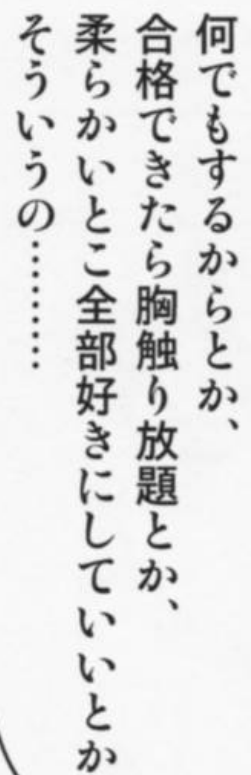 何でもするからとか、
合格できたら胸触り放題とか、
柔らかいとこ全部好きにしていいとか
そういうの………